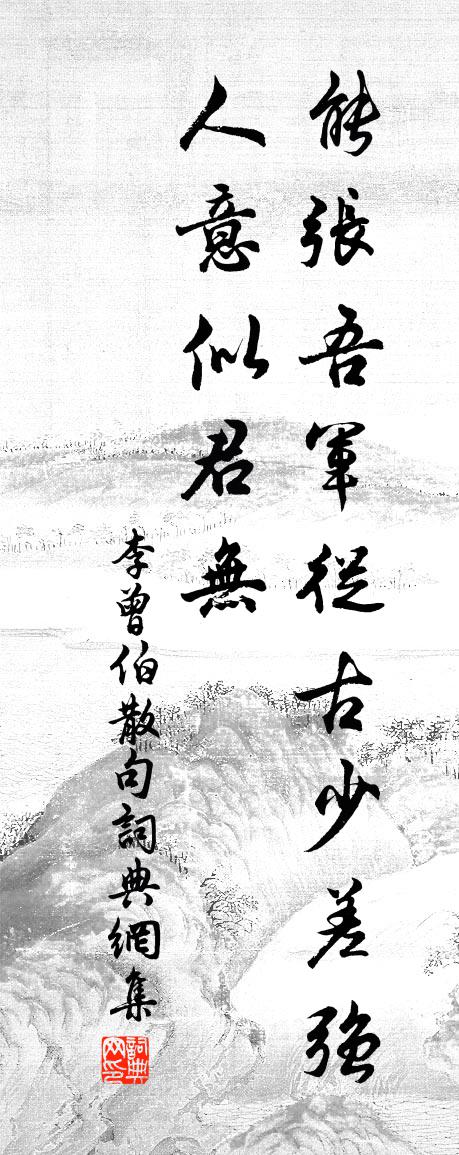 能張吾軍從古少差強
人意似君無
李曾伯散句詞典網集
詞典網印